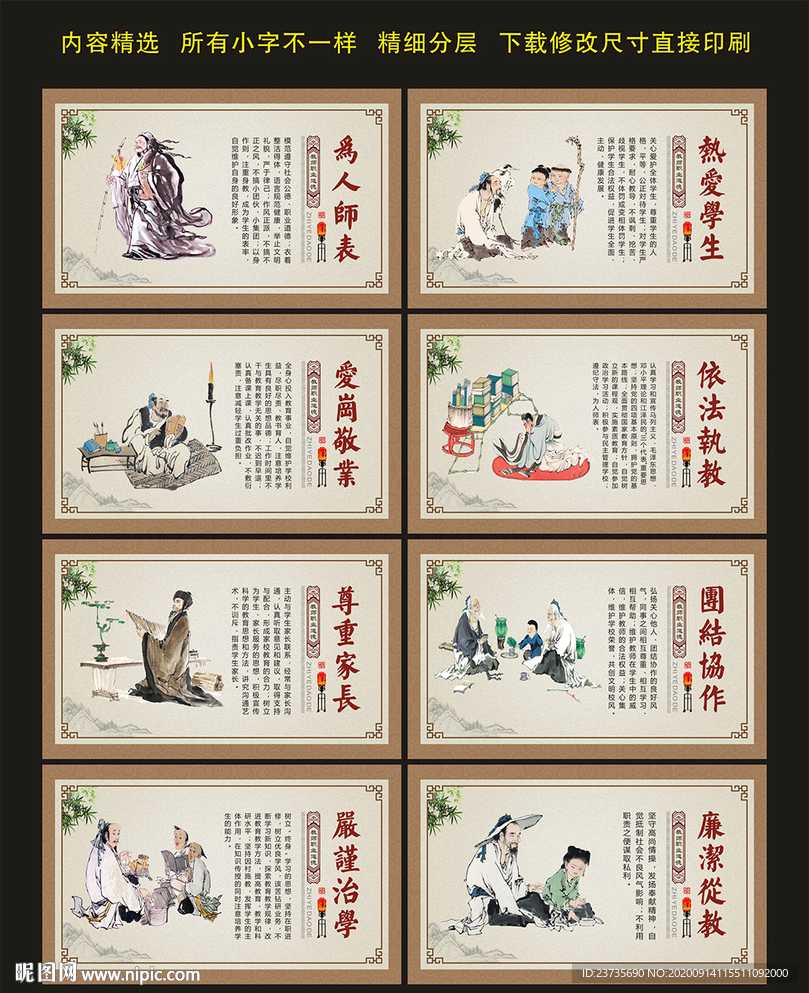 内容精选 所有小字不一样 精细分层 下载修改尺寸直接印刷
為人師表
教师职业道德
ZHIYEDAODE
模范遵守社会公德、职业道德；衣着
整洁得体，语言规范健康，举止文明
礼貌，严于律己；作风正派，不搞不
正之风，不搞小团伙、小集团；以身
作则，注重身教，成为学生的表率，
自觉维护自身的良好形象。
熱愛學生
教师职业道德
ZHIYEDAODE
关心爱护全体学生，尊重学生的人
格，平等、公正对待学生；对学生严
格要求，耐心教导，不讽刺、挖苦、
歧视学生，不体罚或变相体罚学生；
保护学生合法权益，促进学生全面、
主动、健康发展。
愛崗敬業
教师职业道德
ZHIYEDAODE
全身心投入教育事业，自觉维护学校利
益，尽职尽责、教书育人，注意培养学
生具有良好的思想品德；工作时间里不
干与教育教学无关的事，不迟到早退；
认真备课上课，认真批改作业，不敷衍
塞责，注意减轻学生过重负担。
依法執教
教师职业道德
ZHIYEDAODE
认真学习和宣传马列主义、毛泽东思想、
邓小平理论和江泽民的“三个代表”重要思
想；坚持党的四项基本原则，拥护党的基
本路线；全面贯彻国家教育方针，自觉树
立新的课程观，实施素质教育；自觉参加
政治学习活动；积极参与民主管理学校；
遵纪守法，为人师表。
尊重家長
教师职业道德
ZHIYEDAODE
主动与学生家长联系，经常与家长沟
通，认真听取意见和建议，取得支持
与配合，形成家校教育的合力；树立
为学生、家长服务的思想，积极宣传
科学的教育思想和方法，讲究沟通艺
术，不训斥、指责学生家长。
團結協作
教师职业道德
ZHIYEDAODE
弘扬关心他人、团结协作的良好风
气，同事之间相互尊重、相互学习、
相互帮助；维护教师在学生中的威
信，维护教师的合法权益；关心集
体，维护学校荣誉，共创文明校风。
嚴謹治學
教师职业道德
ZHIYEDAODE
树立“终身”学习的思想，坚持在职进
修，树立优良学风，该苦钻研业务，不
断学习新知识，探索教育教学规律，改
进教育教学方法，提高教育、教学和科
研水平；坚持因材施教，发挥学生的主
体作用，在知识传授的同时注意培养学
生的能力。
廉潔從教
教师职业道德
ZHIYEDAODE
坚守高尚情操，发扬奉献精神，自
觉抵制社会不良风气影响；不利用
职责之便谋取私利。
昵图网 www.nipic.com
ID:23735690 NO:20200914115511092000